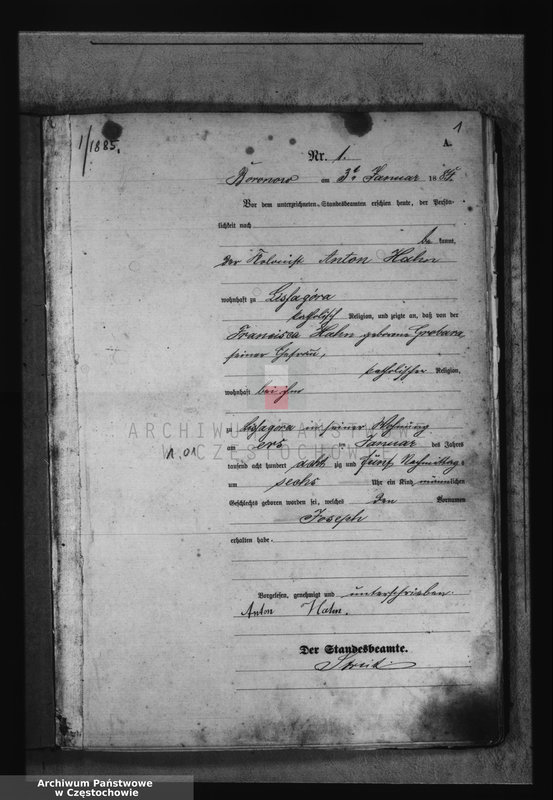 1/1885.
1
A.
Nr. 1.
Boronow am 3t Januar 1885.
Vor dem unterzeichneten Standesbeamten erschien heute, der Persön-
lichkeit nach
be kannt,
der Kolonist Anton Hahn
wohnhaft zu Lissagóra
katholisch Religion, und zeigte an, daß von der
Francisca Hahn geborene Grobara
seiner Ehefrau,
katholischer Religion,
wohnhaft bei ihm
zu Lissagóra in seiner Wohnung
am ers ten Januar des Jahres
tausend acht hundert acht zig und fünf Nachmittags
um sechs Uhr ein Kind männlichen
Geschlechts geboren worden sei, welches den Vornamen
Joseph
erhalten habe.
1.01
Vorgelesen, genehmigt und unterschrieben.
Anton Hahn.
Der Standesbeamte.
ARCHIWUM PAŃSTWOWE
W CZĘSTOCHOWIE
Archiwum Państwowe
w Częstochowie